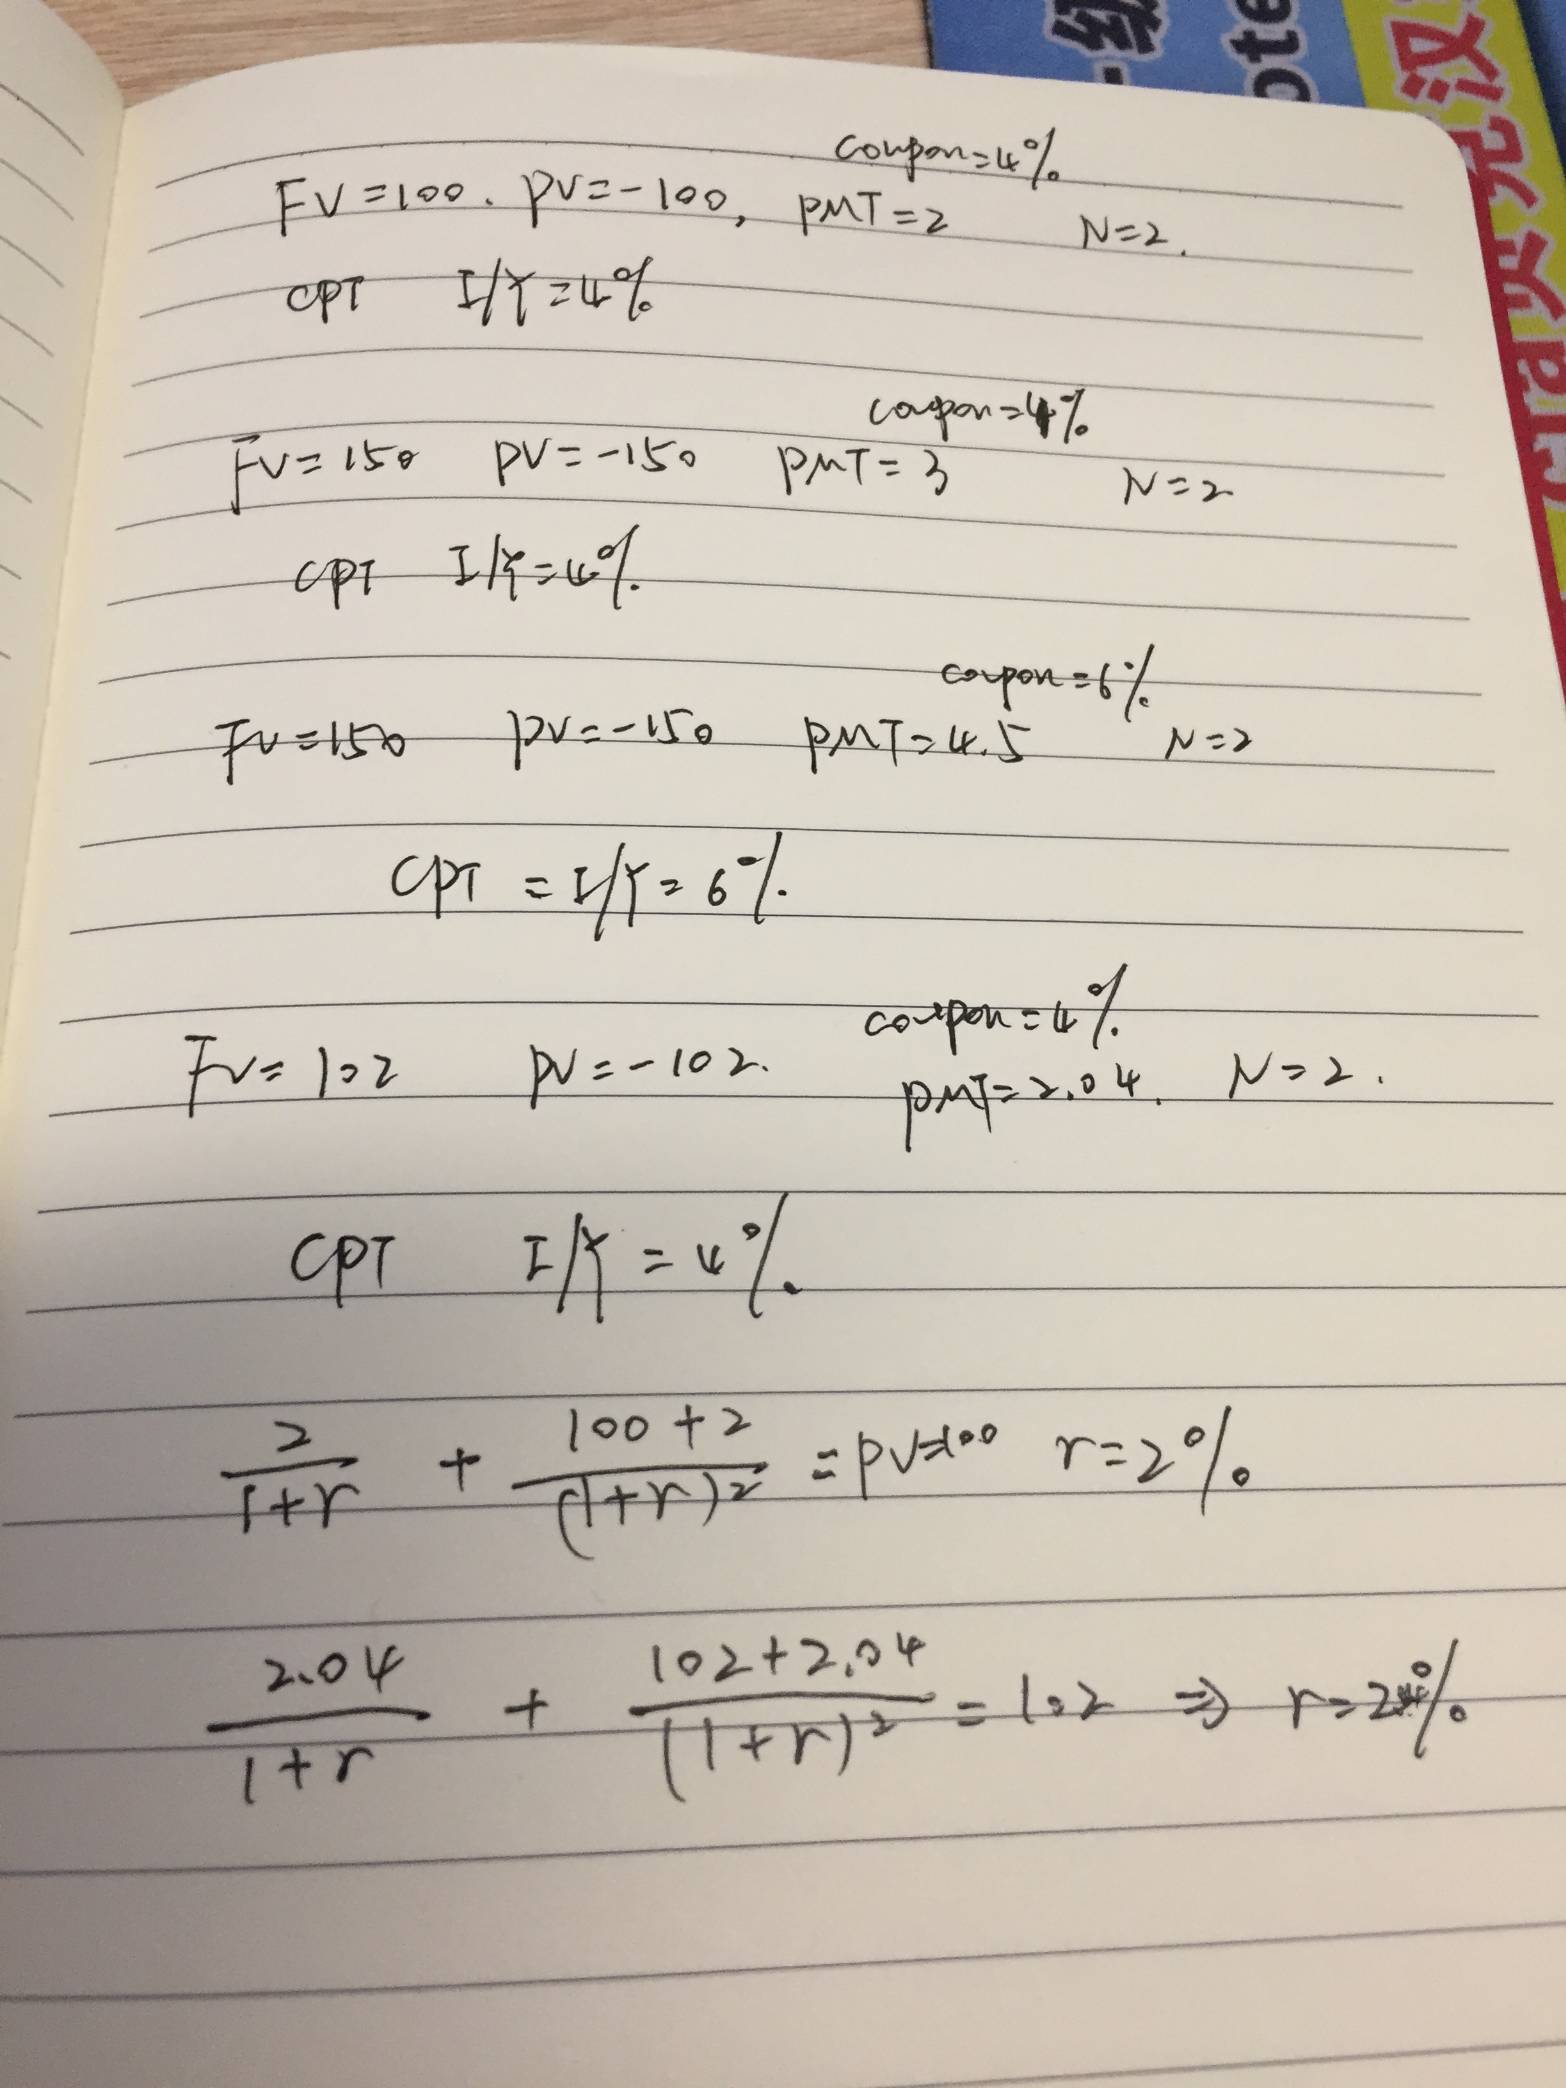 coupon=4%
FV=100. PV=-100, PMT=2 N=2.
CPT I/Y=4%
coupon=4%
FV=150 PV=-150 PMT=3 N=2
CPT I/Y=4%
coupon=6%
FV=150 PV=-150 PMT=4.5 N=2
CPT = I/Y=6%.
coupon=4%
FV=102 PV=-102. PMT=2.04. N=2.
CPT I/Y=4%.
2/(1+r) + (100+2)/(1+r)² = PV=100 r=2%
2.04/(1+r) + (102+2.04)/(1+r)² = 102 ⇒ r=2%
级
ote
汉